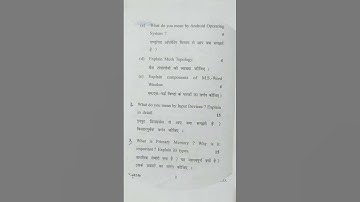 (c) What do you mean by Android Operating
System ? 6
एन्ड्रॉयड ऑपरेटिंग सिस्टम से आप क्या समझते
हैं ?
(d) Explain Mesh Topology. 6
मेश टोपोलॉजी की व्याख्या कीजिए ।
(e) Explain components of M.S.-Word
Window. 6
एम.एस.-वर्ड विण्डो के घटकों का वर्णन कीजिए ।
2. What do you mean by Input Devices ? Explain
in detail. 15
इनपुट डिवाइसेस से आप क्या समझते हैं ?
विस्तारपूर्वक वर्णन कीजिए ।
3. What is Primary Memory ? Why is it
important ? Explain its types. 15
प्राथमिक मेमोरी क्या है ? यह महत्वपूर्ण क्यों है ?
इसके प्रकारों का वर्णन कीजिए ।